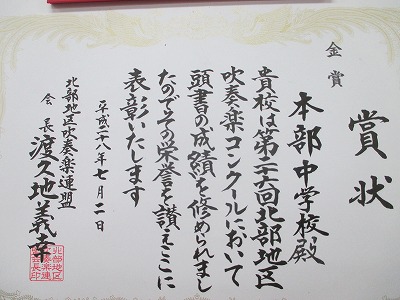 賞状
金賞
本部中学校殿
貴校は第二十六回北部地区
吹奏楽コンクールにおいて
頭書の成績を修められまし
たのでその栄誉を讃えここに
表彰いたします
平成二十八年七月二日
北部地区吹奏楽連盟
会長 渡久地義幸
北部地区
吹奏楽連
盟会長印